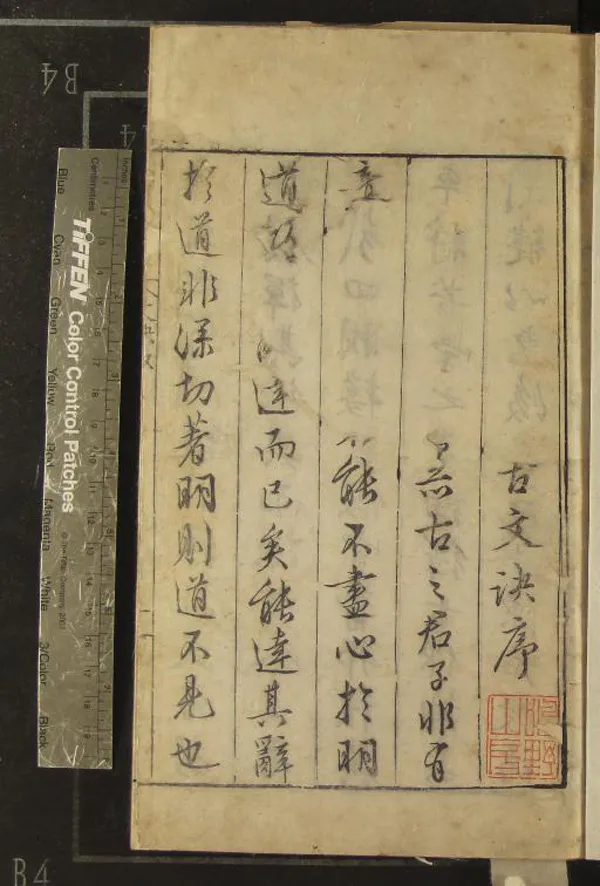 古文訣序
古之君子非有
意能不盡心於明
道達而已矣能達其辭
於道非深切著明則道不見也
TIFFEN Color Control Patches
© The Tiffen Company, 2007
Centimetres
Inches
Blue
Cyan
Green
Yellow
Red
Magenta
White
3/Color
Black
B4
B4